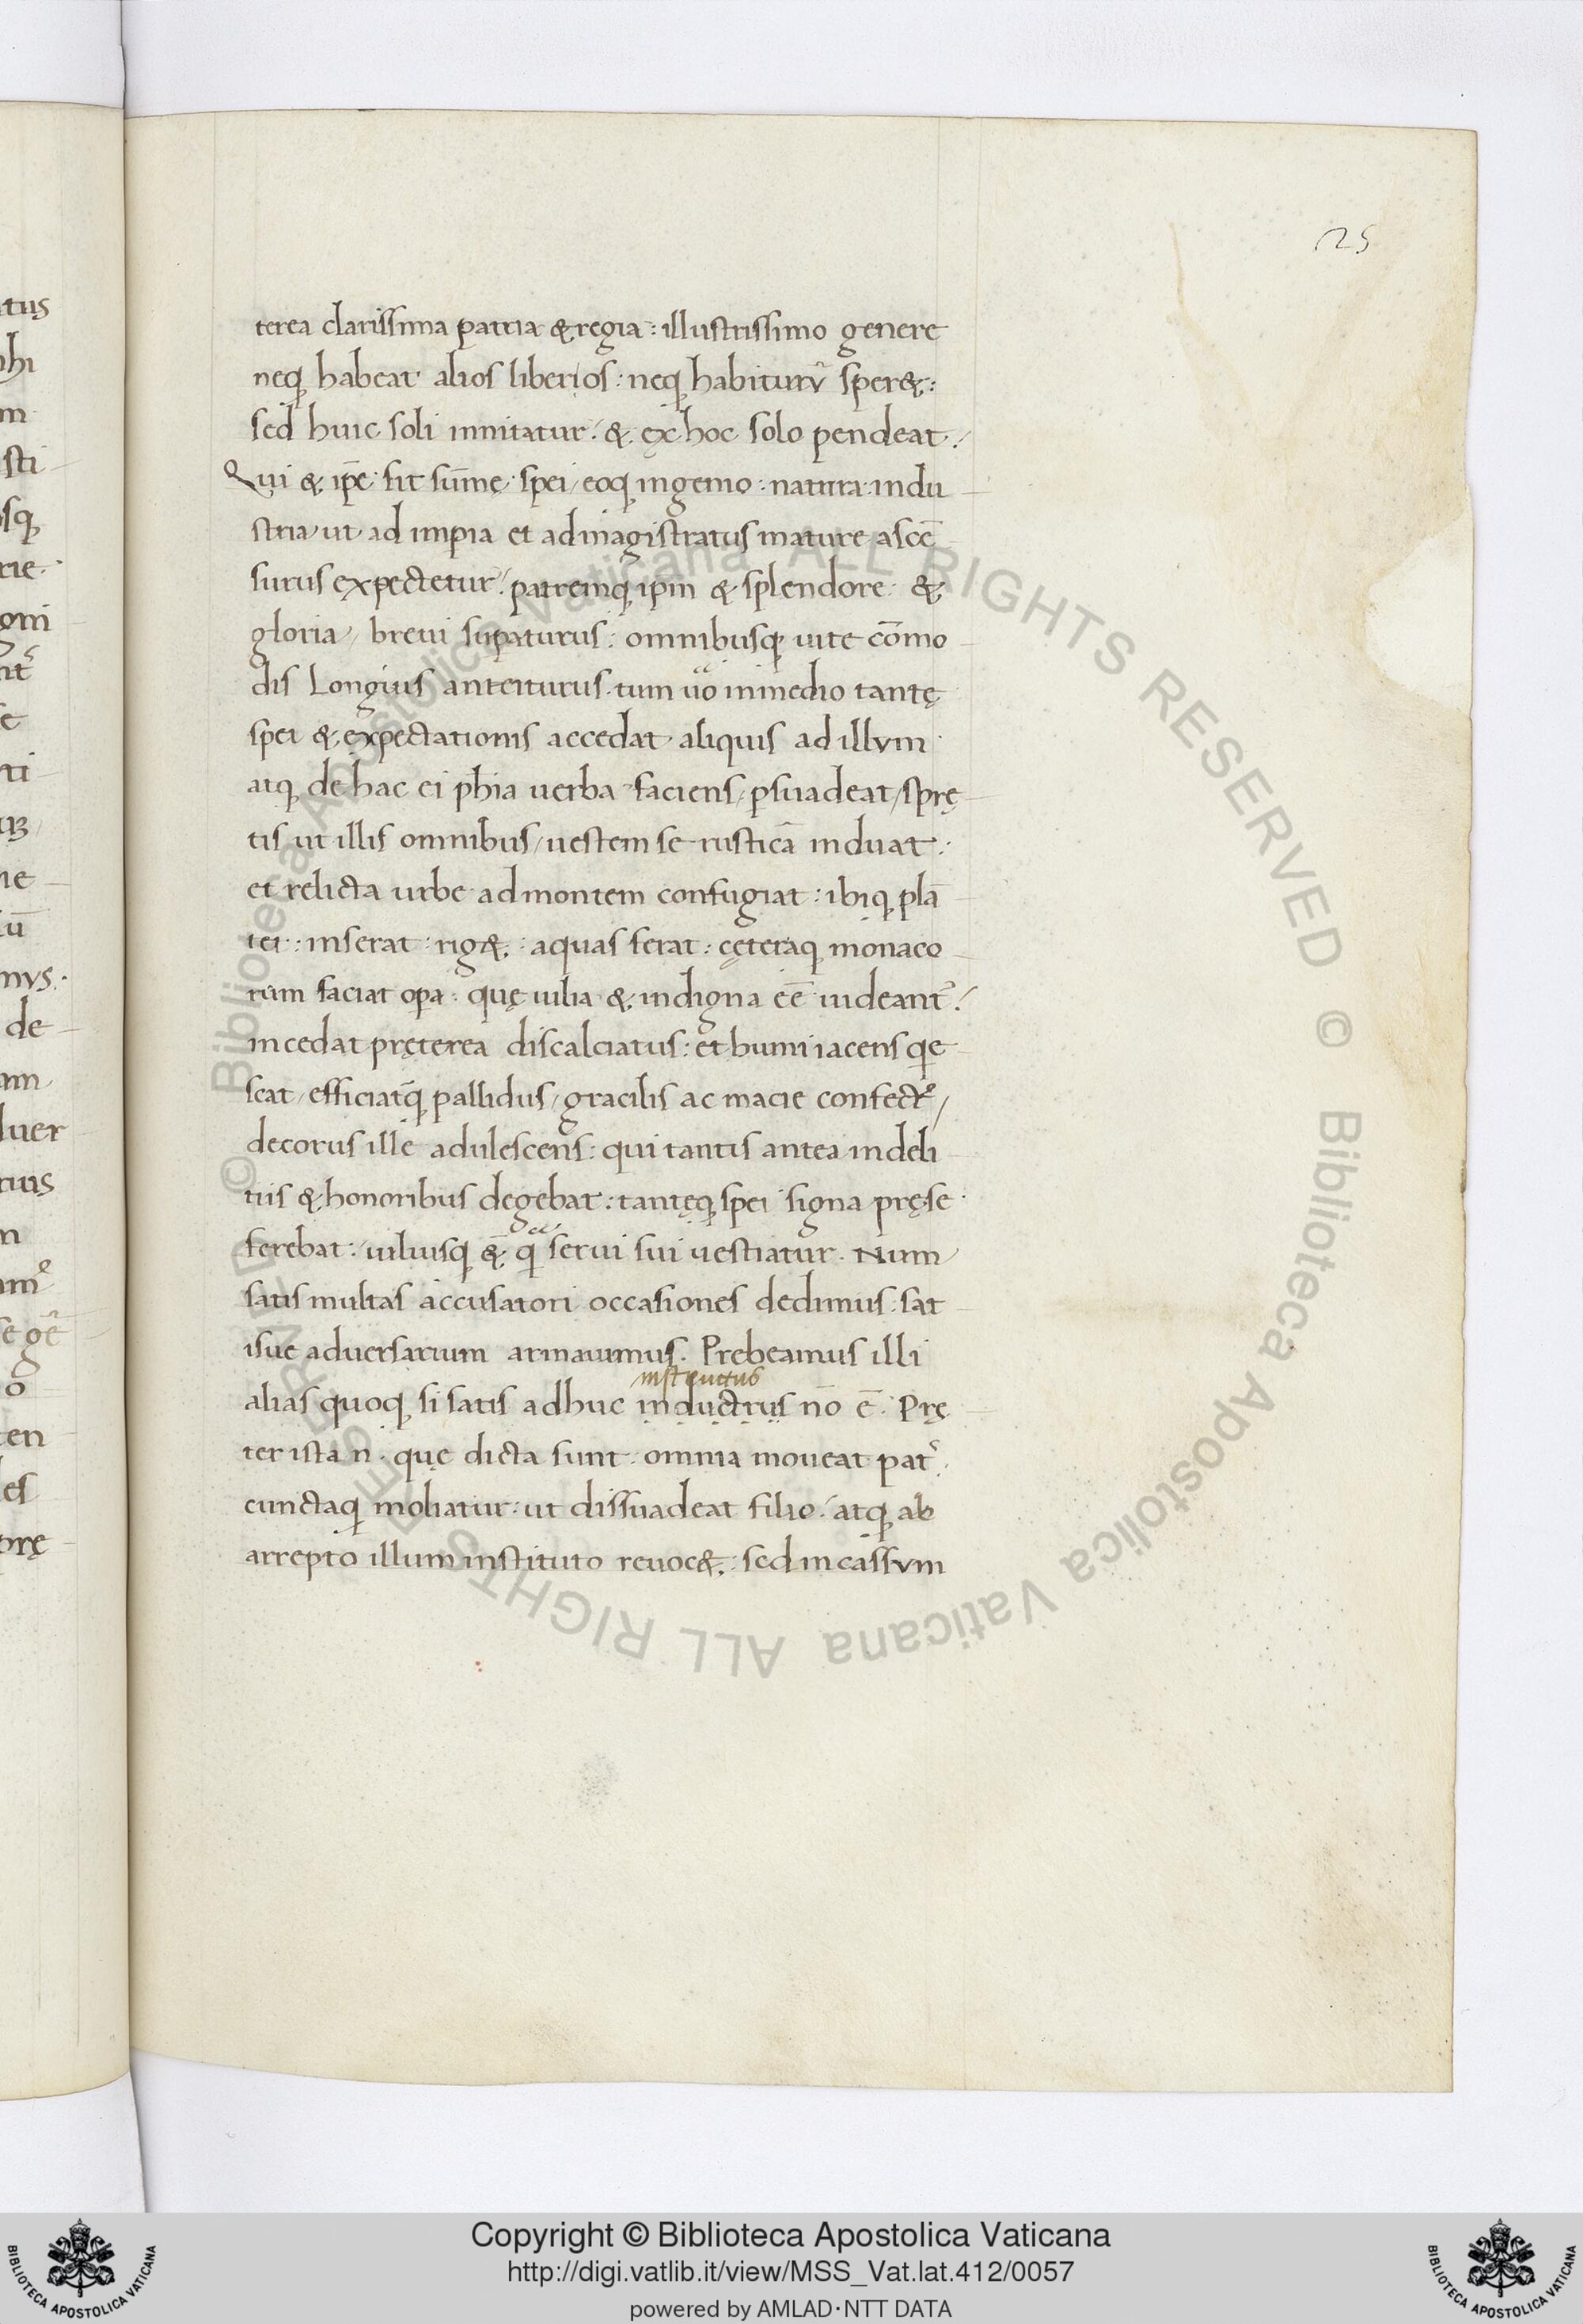 25
terea clarissima patria & regia: illustrissimo genere
neq habeat alios liberos: neq habiturũ sper&:
sed huic soli innitatur: & ex hoc solo pendeat:
Qui & ip̄e sit sum̄ę spei / eoq ingenio: natura: indu
stria: ut ad imp̱ia et ad magistratus mature ascē
surus expectetur: patremq ip̄m & splendore &
gloria / breui sup̱aturus: omnibusq uite com̄o
dis Longius anteiturus. tum ũo in medio tantę
spei & expectationis accedat aliquis ad illvm
atq de hac ei ph̄ia uerba faciens / p̱suadeat / sprę
tis ut illis omnibus / uestem se rusticā induat:
et relicta urbe ad montem confugiat: ibiq plā
tet: inserat: rig&: aquas ferat: cęteraq monaco
rum faciat op̱a: quę uilia & indigna eē uideant̃:
incedat pręterea discalciatus: et humi iacens q̱e
scat / efficiat̃q pallidus / gracilis ac macie confect9 /
decorus ille adulescens: qui tantis antea in deli
tiis & honoribus degebat: tantęq spei signa pręse
ferebat: uiliusq & q̃ serui sui uestiatur. Num
satis multas accusatori occasiones dedimus: sat
isue aduersarium armauimus. Prebeamus illi
instructus
alias quoq si satis adhuc inductrus nō ē. Prę
ter ista n. quę dicta sunt: omnia moueat pat̃:
cunctaq moliatur: ut dissuadeat filio: atq ab
arrepto illum instituto reuoc&: sed in cassvm
Copyright © Biblioteca Apostolica Vaticana
http://digi.vatlib.it/view/MSS_Vat.lat.412/0057
powered by AMLAD·NTT DATA
BIBLIOTECA APOSTOLICA VATICANA
BIBLIOTECA APOSTOLICA VATICANA
© Biblioteca Apostolica Vaticana ALL RIGHTS RESERVED © Biblioteca Apostolica Vaticana ALL RIGHTS RESERVED